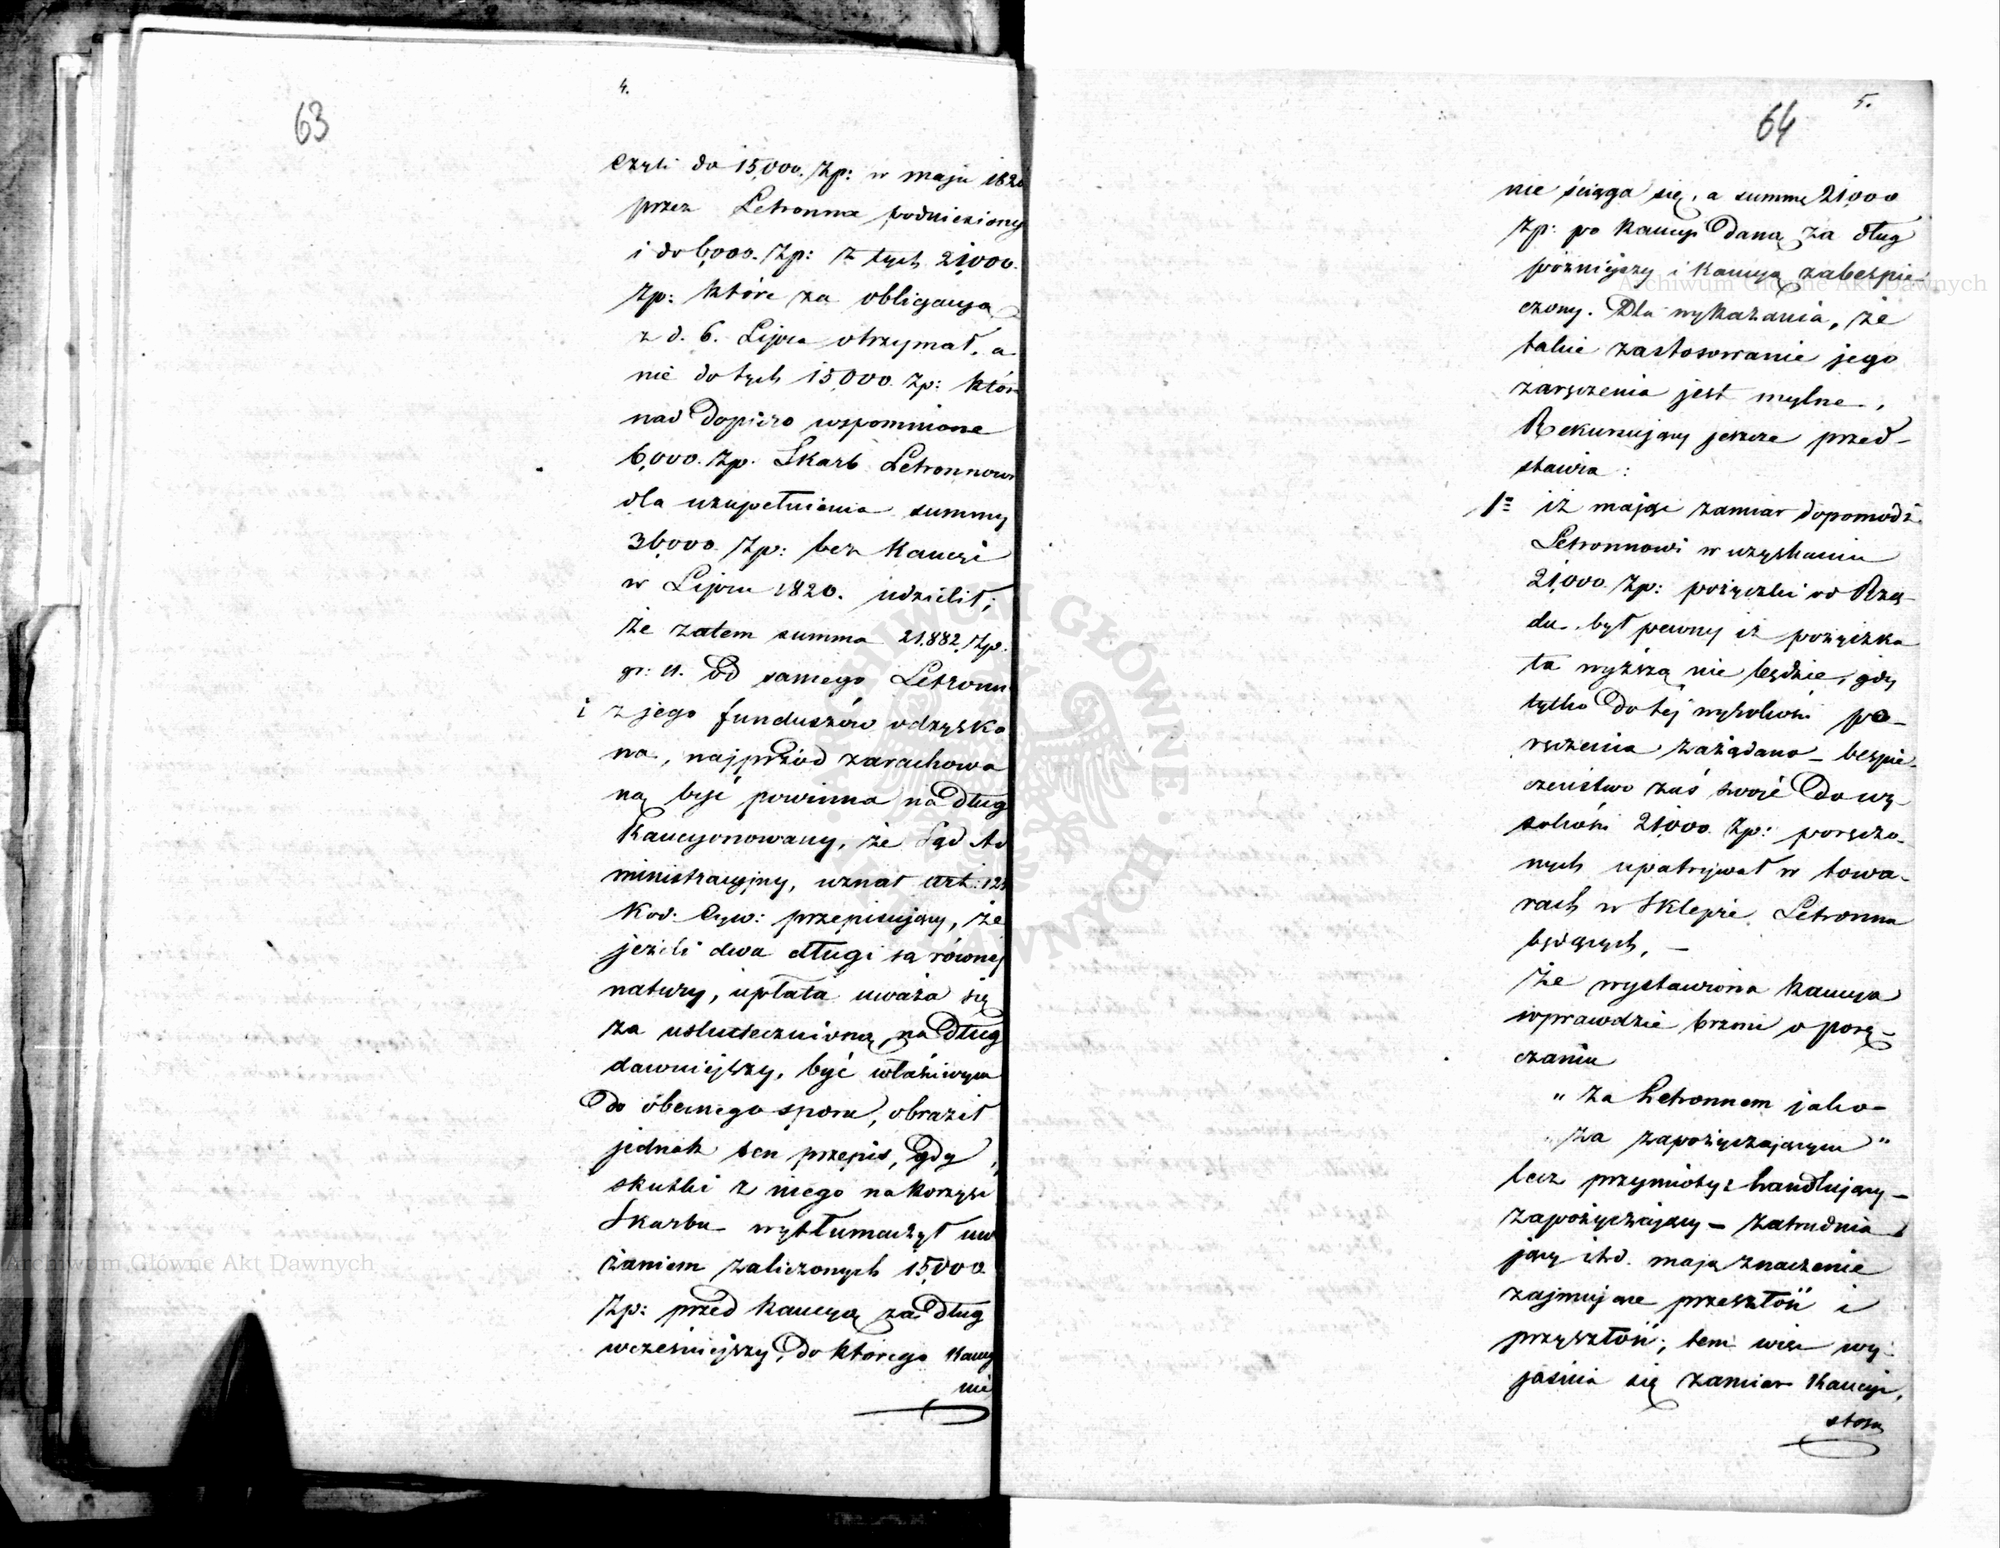 63
4.
czyli do 15,000. Zp: w maju 1820
przez Letronna podniesiony
i do 6,000. Zp: z tych 21,000.
Zp: które za obligacyą
z d. 6. Lipca otrzymał, a
nie do tych 15,000. Zp: któr
nad dopiéro wspomnione
6,000. Zp. Skarb Letronnowi
dla uzupełnienia summy
36,000. Zp: bez Kaucyi
w Lipcu 1820. udzielił;
że zatem summa 21.882. Zp:
gr: 11. od samego Letronn
i z jego funduszów odzyska
na, najprzód zarachowa
ną być powinna na dług
Kaucyonowany, że Sąd Ad
ministracyjny, uznał art: 12
Kod: Cyw: przepisujący, że
jeżeli dwa długi są równej
natury, upłata uważa się
za uskutecznioną na dług
dawniejszy, być właściwym
do obecnego sporu, obraził
jednak ten przepis, gdy
skutki z niego na korzyść
Skarbu wytłumaczył uw
żaniem zaliczonych 15,000.
Zp: przed Kaucyą za dług
wcześniejszy, do którego Kaucy
nie
64
5.
nie ściąga się, a summę 21,000
Zp: po Kaucyi daną za dług
późniejszy i Kaucyą zabespie-
czony. Dla wykazania, że
takie zastosowanie jego
zaręczenia jest mylne,
Rekurujący jeszcze przed-
stawia:
1= iż mając zamiar dopomódz
Letronnowi w uzyskaniu
21,000. Zp: pożyczki od Rzą-
du, był pewny iż pożyczka
ta wyższą nie będzie, gdy
tylko do tej wysokości po-
ręczenia zażądano – bespie-
czeństwo zaś swoje do wy-
sokości 21,000. Zp: poręczo-
nych upatrywał w towa-
rach w Sklepie Letronna
będących, –
Że wystawiona Kaucya
wprawdzie brzmi o porę-
czaniu
"za Letronnem jako
"za zapożyczającym"
lecz przymioty: handlujący –
zapożyczający – zatrudnia
jący itd. mają znaczenie
zajmujące przeszłość i
przyszłość; tem więc wy-
jaśnia się zamiar Kaucyi,
stosu
Archiwum Główne Akt Dawnych
Archiwum Główne Akt Dawnych
ARCHIWUM GŁÓWNE AKT DAWNYCH